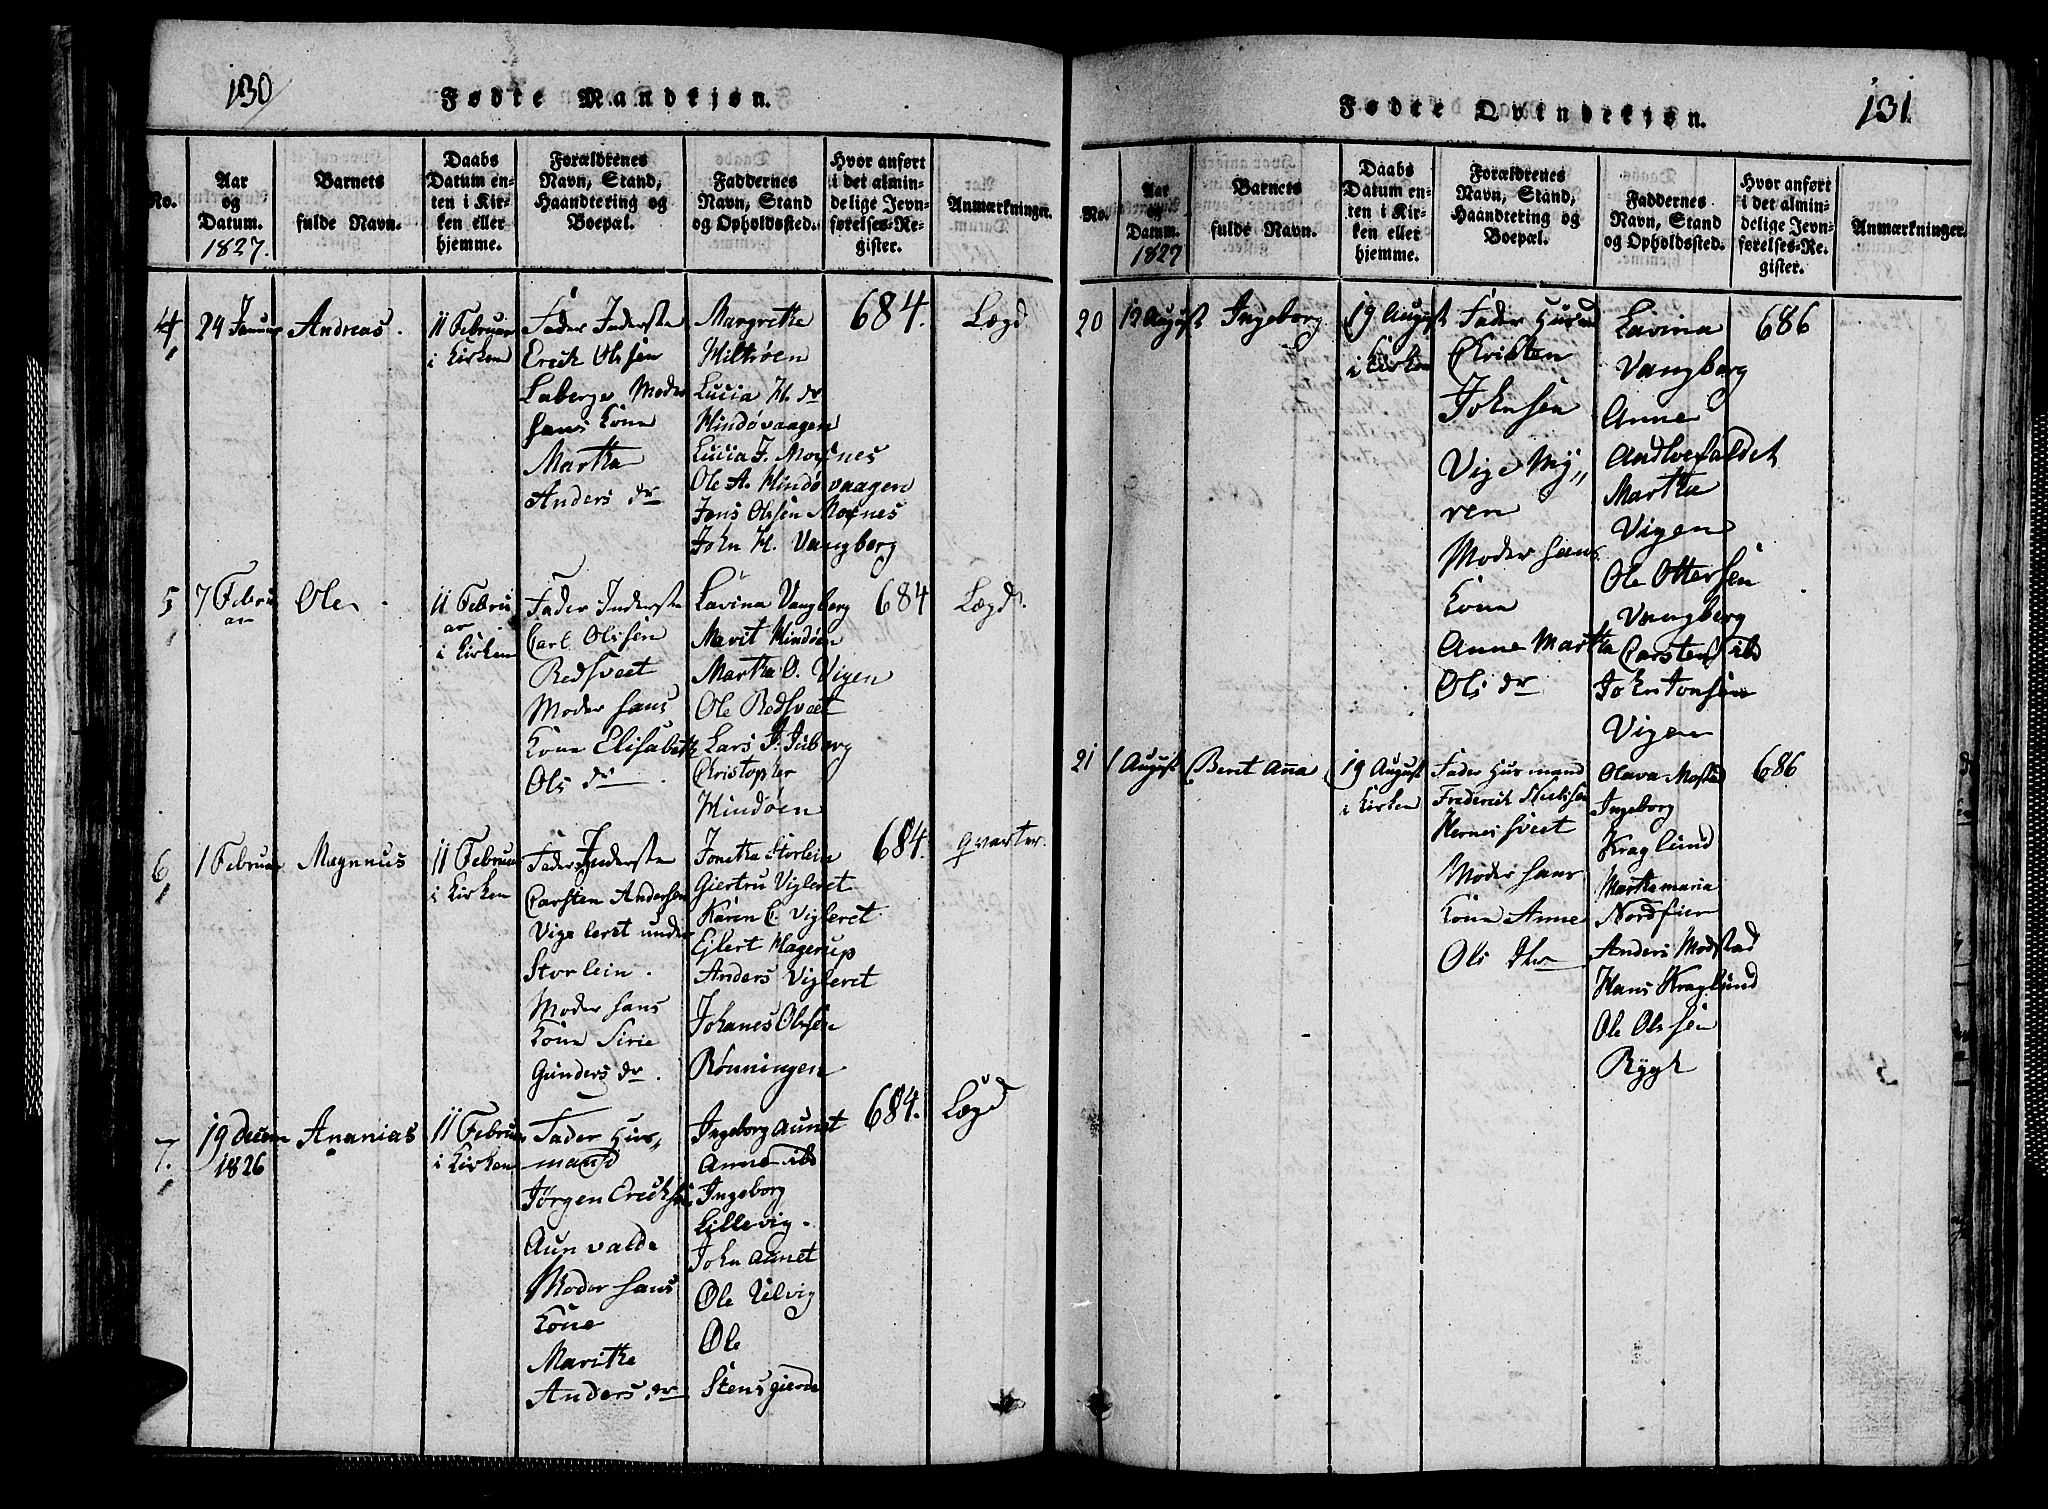 130
Fødte Mandkjøn.
No.
Aar
og
Datum.
1827.
Barnets
fulde Navn.
Daabs
Datum en-
ten i Kir-
ken eller
hjemme.
Forældrenes
Navn, Stand,
Haandtering og
Boepæl.
Faddernes
Navn, Stand
og Opholdssted.
Hvor anført
i det almin-
delige Jevn-
førelses-Re-
gister.
Anmærkninger.
4
24 Januar
Andreas.
11 Februar
i Kirken
Fader Inderste
Erick Olssen
Laberge Moder
hans Kone
Martha
Anders dr
Margretha
Hiltrøen
Lucia H. dr
Hindøvaagen
Lucia J. Moesnes
Ole A. Hindøvaagen
Jens Olssen Moesnes
John H. Vangberg
684.
Lægd
5
7 Febru
ar
Ole
11 Febru
ar
i Kirken
Fader Inderste
Carl Olssen
Redsveet
Moder hans
Kone Elisabeth
Ols dr
Lavina Vangberg
Marit Hindøen
Martha O. Vigen
Ole Redsveet
Lars J. Juberg
Christopher
Hindøen
684
Lægd.
6
1 Februar
Magnus
11 Februar
i Kirken
Fader Inderste
Carsten Andersen
Vigleret under
Storlein.
Moder hans
Kone Sirie
Gunders dr.
Jonetha Storlein
Giertru Vigleret
Karen C. Vigleret
Ejlert Hagerup
Anders Vigleret
Johanes Olssen
Rønningen
684.
qvarter.
7.
19 decem
1826
Ananias
11 Februar
i Kirken
Fader Hus,,
mand
Jørgen Ericksen
Aunvalde
Moder hans
Kone
Marithe
Anders dr
Ingeborg Aunet
Anne ibd
Ingeborg
Lillevig.
John Aunet
Ole Ulvig
Ole
Stensgierde
684.
Lægd
131
Fødte Qvindekjøn.
No.
Aar
og
Datum.
1827
Barnets
fulde Navn.
Daabs
Datum en-
ten i Kir-
ken eller
hjemme.
Forældrenes
Navn, Stand,
Haandtering og
Boepæl.
Faddernes
Navn, Stand
og Opholdssted.
Hvor anført
i det almin-
delige Jevn-
førelses-Re-
gister.
Anmærkninger.
20
12 August
Ingeborg
19 August
i Kirken
Fader Husmd
Christen
Johnsen
Vige My,,
ren
Moder hans
Kone
Anne Martha
Ols dr
Lavina
Vangberg
Anne
Aadlvefaldet
Martha
Vigen
Ole Ottersen
Vangberg
Carsten ibd
John Jonsen
Vigen
686
21
1 August
Beret Anna
19 August
i Kirken
Fader Husmand
Frederick Nielssen
Hernessveet
Moder hans
Kone Anne
Ols dr
Olava Mostad
Ingeborg
Kraglund
Marthamaria
Nordfier
Anders Modstad
Hans Kraglund
Ole Olssen
Rygh
686